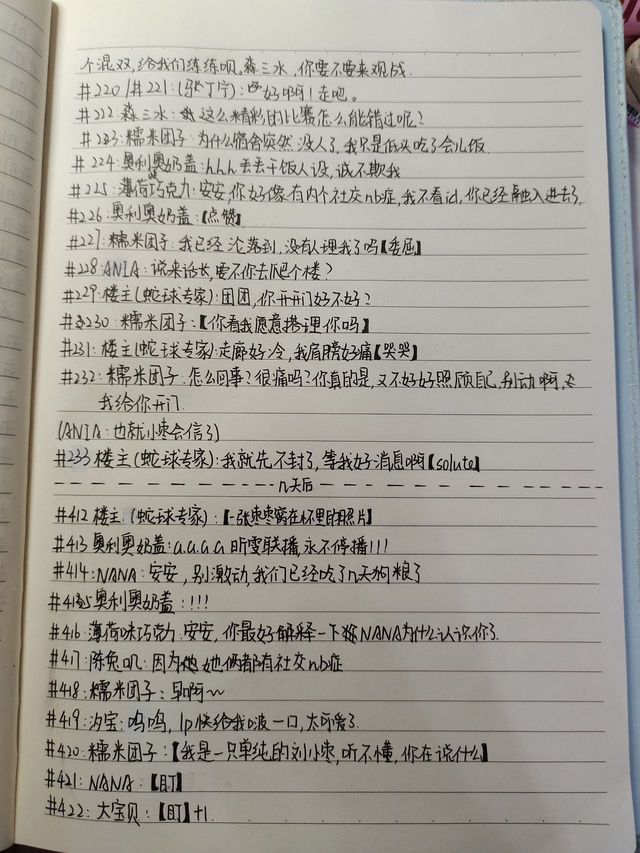 个混双,给我们练练呗。淼三水,你要不要来观战
#220/#221:(张丁宁):好啊!走吧。
#212:淼三水:这么精彩的比赛怎么能错过呢?
#223:糯米团子:为什么宿舍突然没人了,我只是低头吃了会儿饭
#224:奥利奥奶盖:hhh丢丢干饭人设,诚不欺我
#225:薄荷巧克力:安安,你好像有内个社交nb症,我不看id,你已经融入进去了,
#226:奥利奥奶盖:【点赞】
#227:糯米团子:我已经沦落到,没有人理我了吗【委屈】
#228:ANIA:说来话长,要不你去爬个楼?
#229:楼主(蛇球专家):团团,你开开门好不好?
#230:糯米团子:【你看我愿意搭理你吗】
#231:楼主(蛇球专家):走廊好冷,我肩膀好痛【哭哭】
#232:糯米团子:怎么回事?很痛吗?你真的是,又不好好照顾自己,别动啊,
我给你开门.
(ANIA:也就小枣会信了)
#233楼主(蛇球专家):我就先不封了,等我好消息啊【solute】
n天后
#412楼主:(蛇球专家):【一张枣枣窝在怀里的照片】
#413奥利奥奶盖:a.a.a.a昕雯联播,永不停播!!!
#414:NANA:安安,别激动,我们已经吃了n天狗粮了
#415奥利奥奶盖:!!!
#416薄荷味巧克力:安安,你最好解释一下NANA为什么认识你了.
#417:陈兔叽:因为她俩都有社交nb症
#418:糯米团子:早啊~
#419:汐宝:呜呜,lp快给我啵一口,太可爱了
#420:糯米团子:【我是一只单纯的刘小枣,听不懂,你在说什么】
#421:NANA:【盯】
#422:大宝贝:【盯】+1